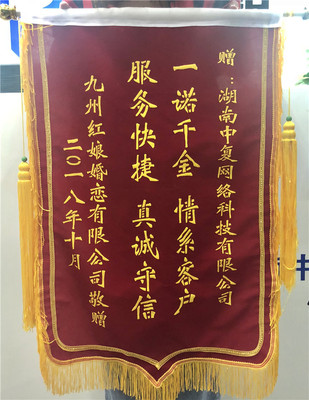 赠：湖南中复网络科技有限公司
一诺千金 情系客户
服务快捷 真诚守信
九州红娘婚恋有限公司敬赠
二〇一八年十月